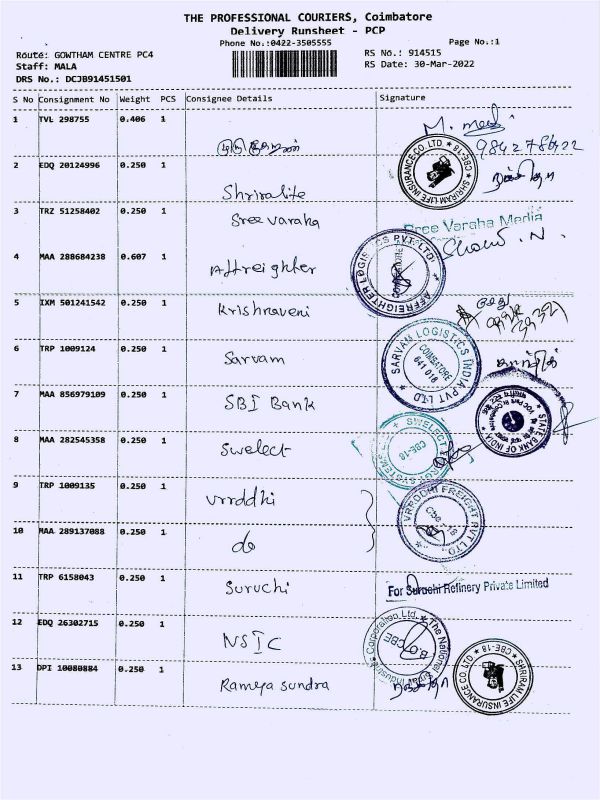 THE PROFESSIONAL COURIERS, Coimbatore
Delivery Runsheet - PCP
Phone No.:0422-3505555
Page No.:1
Route: GOWTHAM CENTRE PC4
RS No.: 914515
Staff: MALA
RS Date: 30-Mar-2022
DRS No.: DCJB91451501
S No Consignment No Weight PCS Consignee Details Signature
1 TVL 298755 0.406 1
9842786422
2 EDQ 20124996 0.250 1 Shriralife
SHRIRAM LIFE INSURANCE CO. LTD. CBE-18
3 TRZ 51258402 0.250 1 Sree varaha
Sree Varaha Media
4 MAA 288684238 0.607 1 Affreighter
AFFREIGHTER LOGISTICS PVT LTD
5 IXM 501241542 0.250 1 Krishnaveni
6 TRP 1009124 0.250 1 Sarvam
SARVAM LOGISTICS INDIA PVT LTD COIMBATORE 641 018
7 MAA 856979109 0.250 1 SBI Bank
STATE BANK OF INDIA
8 MAA 282545358 0.250 1 Swelect
SWELECT CBE-18
9 TRP 1009135 0.250 1 Vrrddhi
VRRDDHI FREIGHT PVT LTD
10 MAA 289137088 0.250 1 do
11 TRP 6158043 0.250 1 Suruchi
For Suruchi Refinery Private Limited
12 EDQ 26302715 0.250 1 NSIC
The National Small Industries Corporation Ltd. B.O CBE
13 DPI 10080884 0.250 1 Rameya sundra
SHRIRAM LIFE INSURANCE CO. LTD. CBE-18